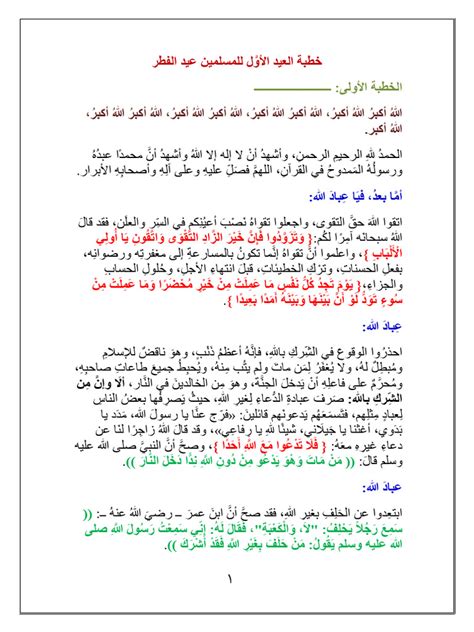 خطبة العيد الأوَّل للمسلمين عيد الفطر
الخطبة الأولى: ــــــــــــــــــــــــ
اللهُ أكبرُ اللهُ أكبرُ، اللهُ أكبرُ اللهُ أكبرُ، اللهُ أكبرُ اللهُ أكبرُ، اللهُ أكبرُ اللهُ أكبرُ،
اللهُ أكبر.
الحمدُ للهِ الرحيمِ الرحمنِ، وأشهدُ أنْ لا إله إلا اللهُ وأشهدُ أنَّ محمدًا عبدُهُ
ورسولُهُ المَمدوحُ في القرآنِ، اللهمَّ فصَلِّ عليهِ وعلى آلِهِ وأصحابِهِ الأبرار.
أمَّا بعدُ، فَيَا عِبادَ الله:
اتقوا اللهَ حقَّ التقوى، واجعلوا تقواهُ نُصْبَ أعيُنِكم في السِّرِ والعلَن، فقد قالَ
اللهُ سبحانَه آمِرًا لكُم: { وَتَزَوَّدُوا فَإِنَّ خَيْرَ الزَّادِ التَّقْوَى وَاتَّقُونِ يَا أُولِي
الْأَلْبَابِ }، واعلموا أنَّ تقواهُ إنَّما تكونُ بالمسارعةِ إلى مغفرتِه ورضوانِه،
بفعلِ الحسناتِ، وتركِ الخطيئاتِ، قبلَ انتهاءِ الأجلِ، وحُلولِ الحسابِ
والجزاءِ، { يَوْمَ تَجِدُ كُلُّ نَفْسٍ مَا عَمِلَتْ مِنْ خَيْرٍ مُحْضَرًا وَمَا عَمِلَتْ مِنْ
سُوءٍ تَوَدُّ لَوْ أَنَّ بَيْنَهَا وَبَيْنَهُ أَمَدًا بَعِيدًا }.
عِبادَ الله:
احذروا الوقوعَ في الشِّركِ باللهِ، فإنَّهُ أعظمُ ذَنْبٍ، وهوَ ناقضٌ للإسلامِ
ومُبطِلٌ لَهُ، ولا يُغْفَرُ لِمَن ماتَ ولم يتُبْ مِنهُ، ويُحبِطُ جميعَ طاعاتِ صاحبِهِ،
ومُحرَّمٌ على فاعلِهِ أنْ يَدخلَ الجنَّةَ، وهوَ مِن الخالدينَ في النَّار، ألَا وإنَّ مِن
الشِّركِ باللهِ: صَرفَ عبادةِ الدُّعاءِ لِغيرِ اللهِ، حيثُ يَصرِفُها بعضُ الناسِ
لِعبادٍ مِثلِهِم، فتَسمَعُهُم يَدعونَهم قائلينَ: «فرِّج عنَّا يا رسولَ الله، مَدَد يا
بدَوي، أغِثنا يا جَيلاني، شيئًا للهِ يا رِفاعِي»، وقد قالَ اللهُ زاجرًا لنا عن
دعاءِ غيرِهِ معَهُ: { فَلَا تَدْعُوا مَعَ اللَّهِ أَحَدًا }، وصحَّ أنَّ النبيَّ صلى الله عليه
وسلم قالَ: (( مَنْ مَاتَ وَهْوَ يَدْعُو مِنْ دُونِ اللَّهِ نِدًّا دَخَلَ النَّارَ )).
عبادَ الله:
ابتعِدوا عنِ الحَلِفِ بغيرِ اللهِ، فقد صحَّ أنَّ ابنَ عمرَ ــ رضيَ اللهُ عنهُ ــ: ((
سَمِعَ رَجُلًا يَحْلِفُ: "لَا، وَالْكَعْبَةِ"، فَقَالَ لَهُ: إِنِّي سَمِعْتُ رَسُولَ اللَّهِ صلى
الله عليه وسلم يَقُولُ: مَنْ حَلَفَ بِغَيْرِ اللَّهِ فَقَدْ أَشْرَكَ )).
١